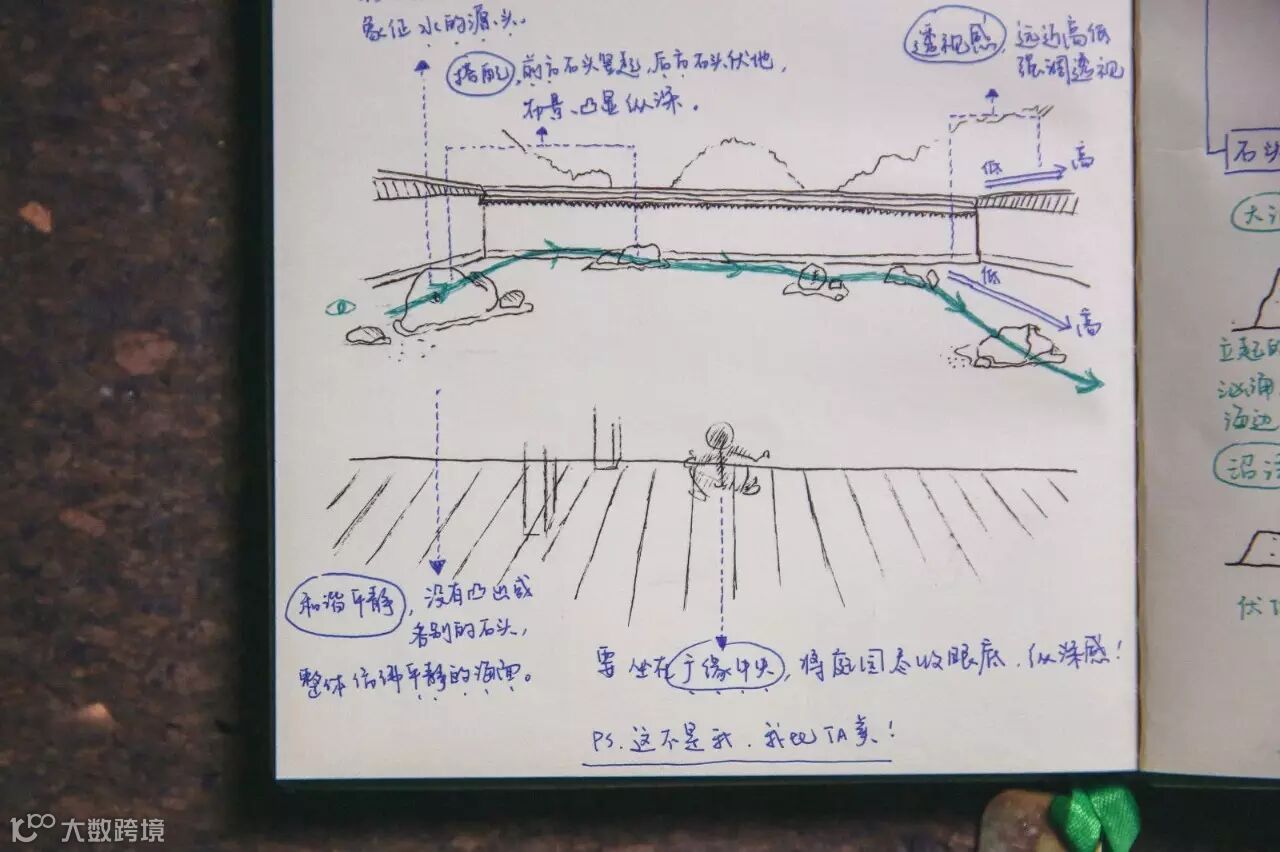 象征水的源头。
搭配,前方石头竖起,后方石头伏地,
布景、凸显纵深。
透视感,远近高低
强调透视
低
高
低
高
石头
立起的
汹涌
海边
沼
伏
和谐平静,没有凸出或
各别的石头,
整体仿佛平静的海面。
要坐在广缘中央,将庭园尽收眼底,纵深感!
PS.这不是我,我比TA美!
大数跨境